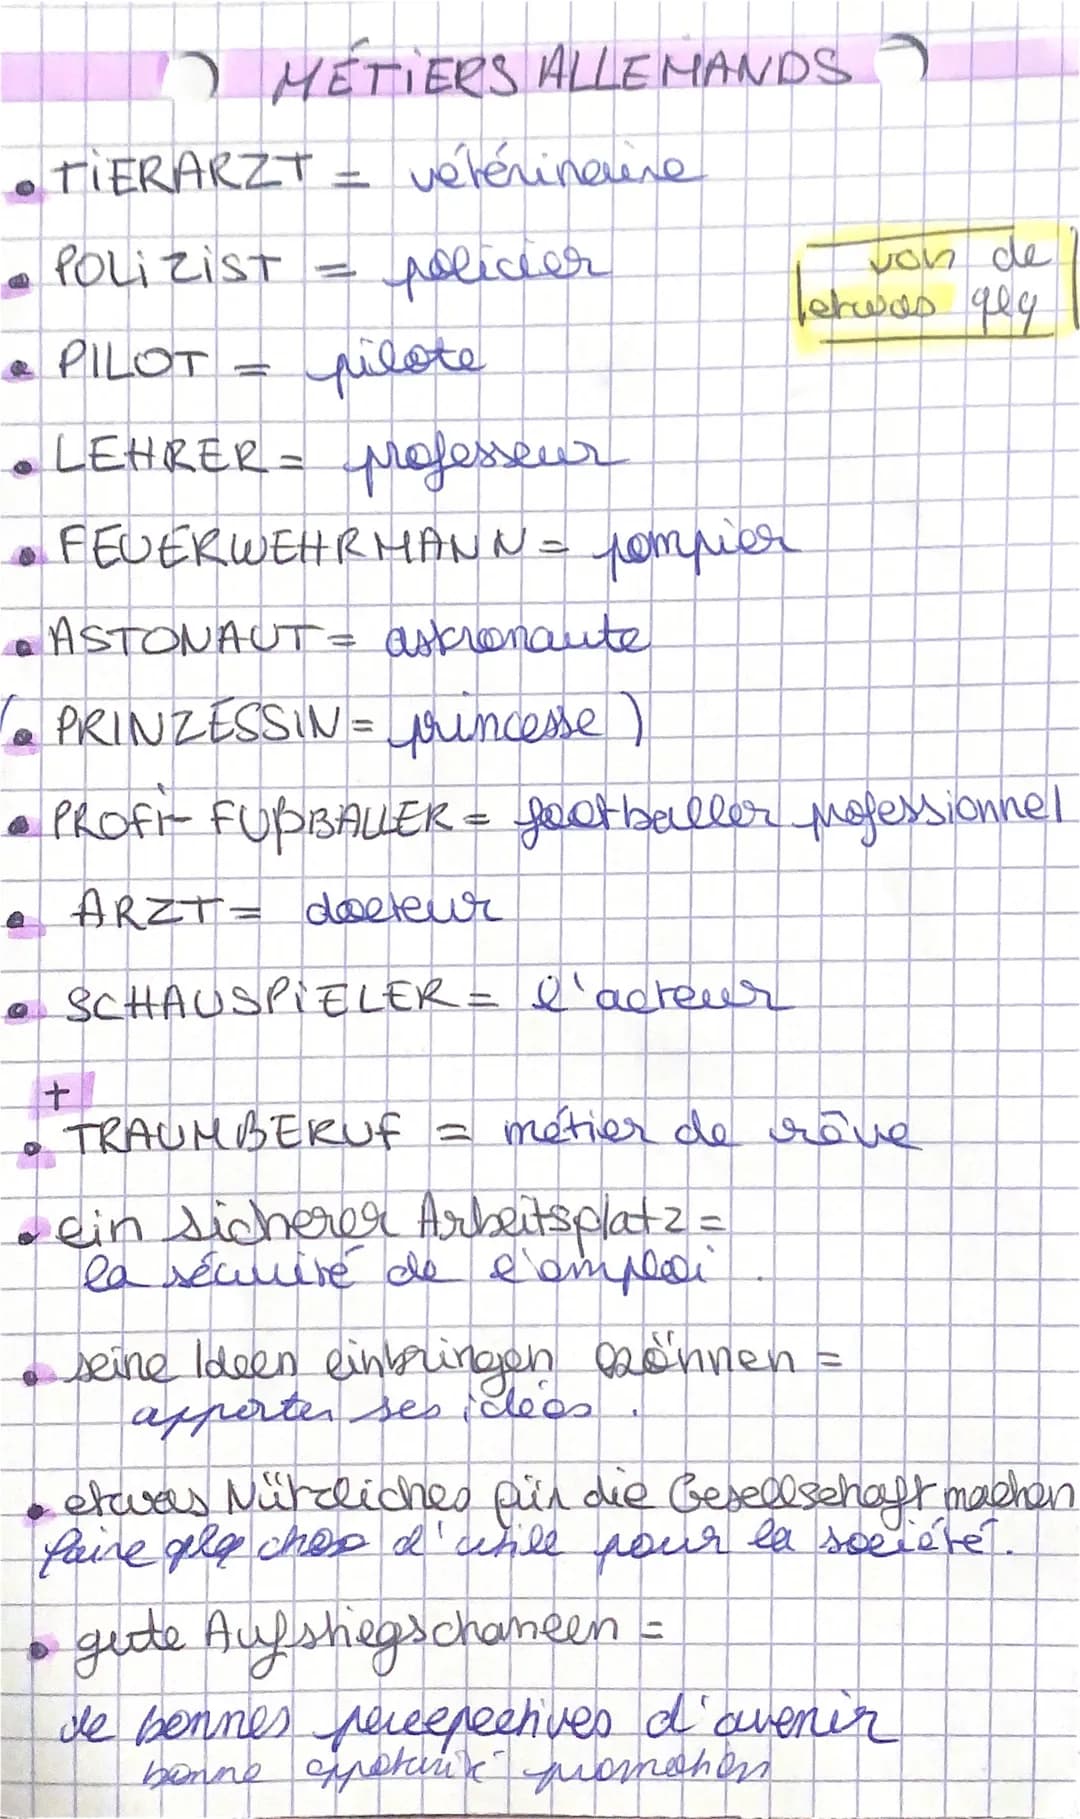 MÉTIERS ALLEMANDS
• TIERARZT = vétérinaire
• POLIZIST = policier
von de
etwas qlq
• PILOT = pilote
• LEHRER = professeur
• FEUERWEHRMANN = pompier
• ASTONAUT = astronaute
(• PRINZESSIN = princesse)
• PROFI-FUßBALLER = footballer professionnel
• ARZT = docteur
• SCHAUSPIELER = l'acteur
+
• TRAUMBERUF = métier de rêve
• ein sicherer Arbeitsplatz =
la sécurité de l'emploi.
• seine Ideen einbringen können =
apporter ses idées.
• etwas Nützliches für die Gesellschaft machen
faire qlq chose d'utile pour la société.
• gute Aufstiegschancen =
de bonnes perspectives d'avenir
bonne promotion